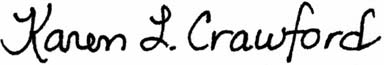 Karen L. Crawford